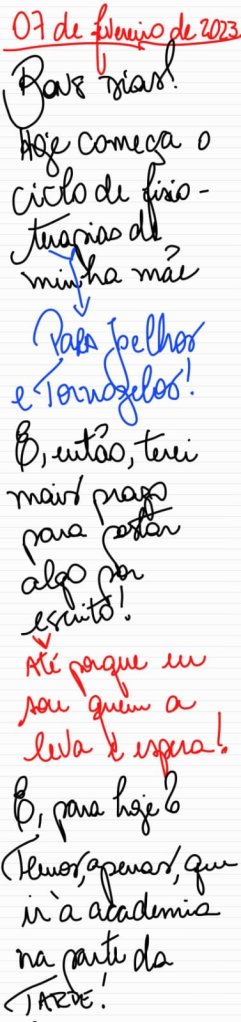 07 de fevereiro de 2023
Bons dias!
Hoje começa o
ciclo de fisio-
terapias de
minha mãe
Para joelhos
e Tornozelos!
E, então, terei
mais prazo
para postar
algo por
escrito!
Até porque eu
sou quem a
leva e espera!
E, para hoje?
Temos, apenas, que
ir à academia
na parte da
TARDE!